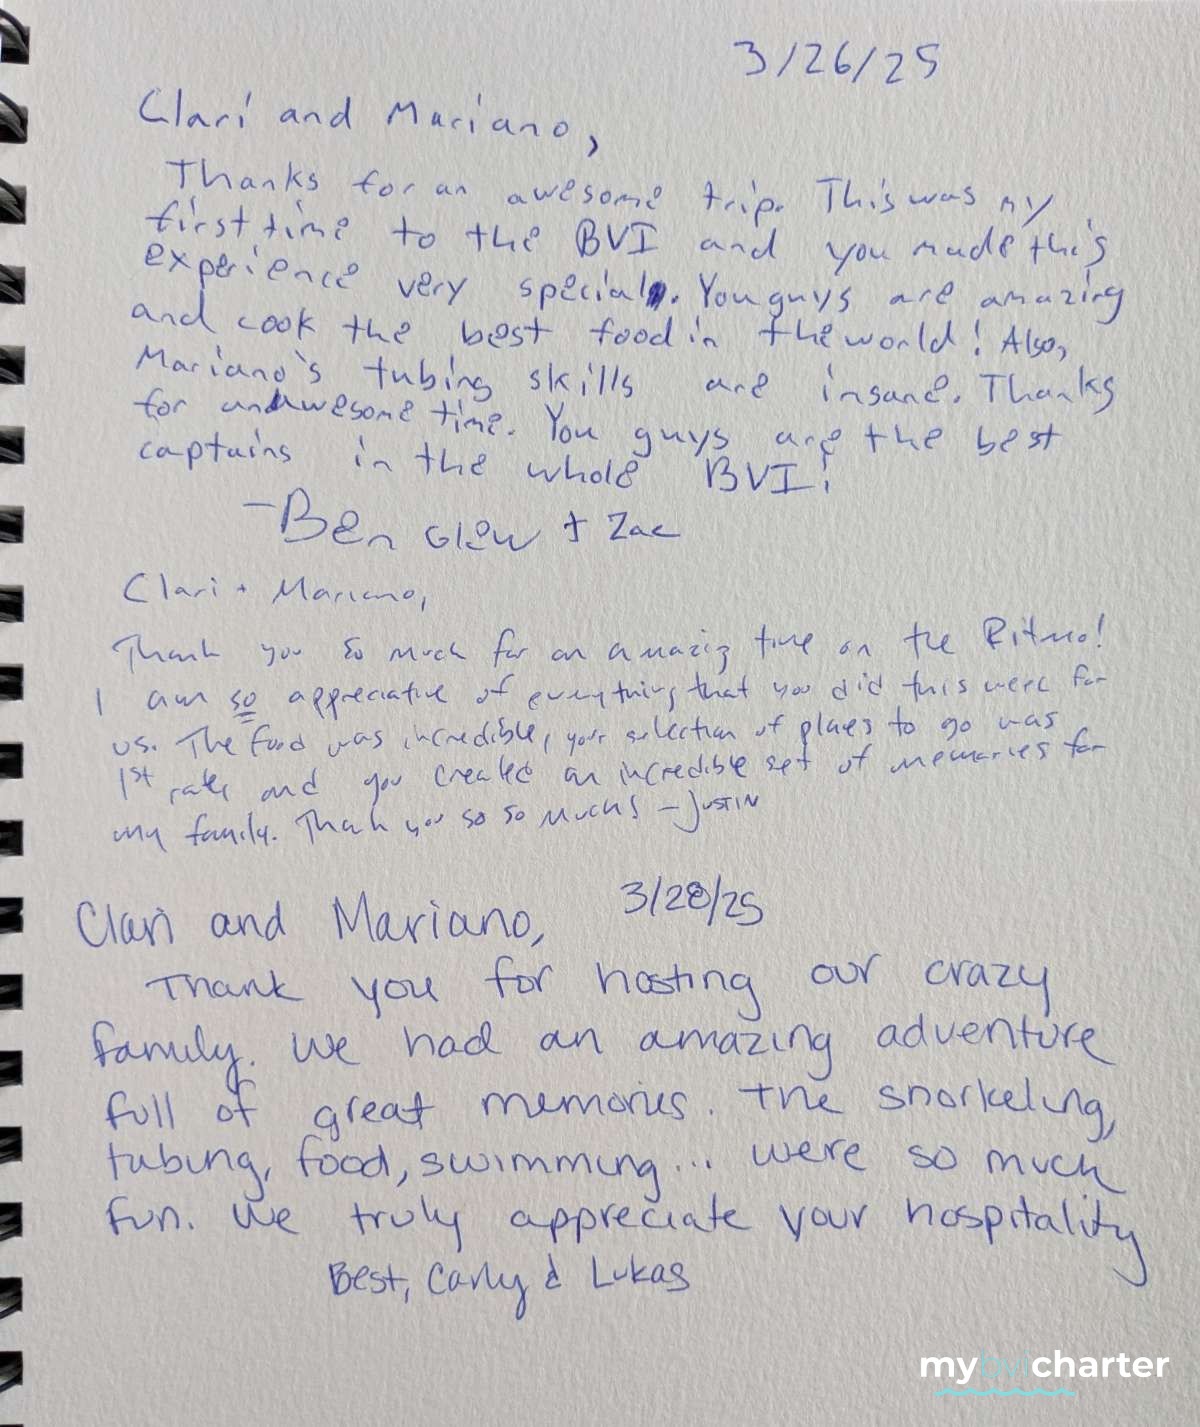 3/26/25
Clari and Mariano,
Thanks for an awesome trip. This was my
first time to the BVI and you made this
experience very special. You guys are amazing
and cook the best food in the world! Also,
Mariano's tubing skills are insane. Thanks
for an awesome time. You guys are the best
captains in the whole BVI!
-Ben Glew + Zac
Clari + Mariano,
Thank you so much for an amazing time on the Ritmo!
I am so appreciative of everything that you did this week for
us. The food was incredible, your selection of places to go was
1st rate and you created an incredible set of memories for
my family. Thank you so so much! - Justin
Clari and Mariano, 3/28/25
Thank you for hosting our crazy
family. We had an amazing adventure
full of great memories. The snorkeling,
tubing, food, swimming... were so much
fun. We truly appreciate your hospitality
Best, Carly & Lukas
mybvicharter